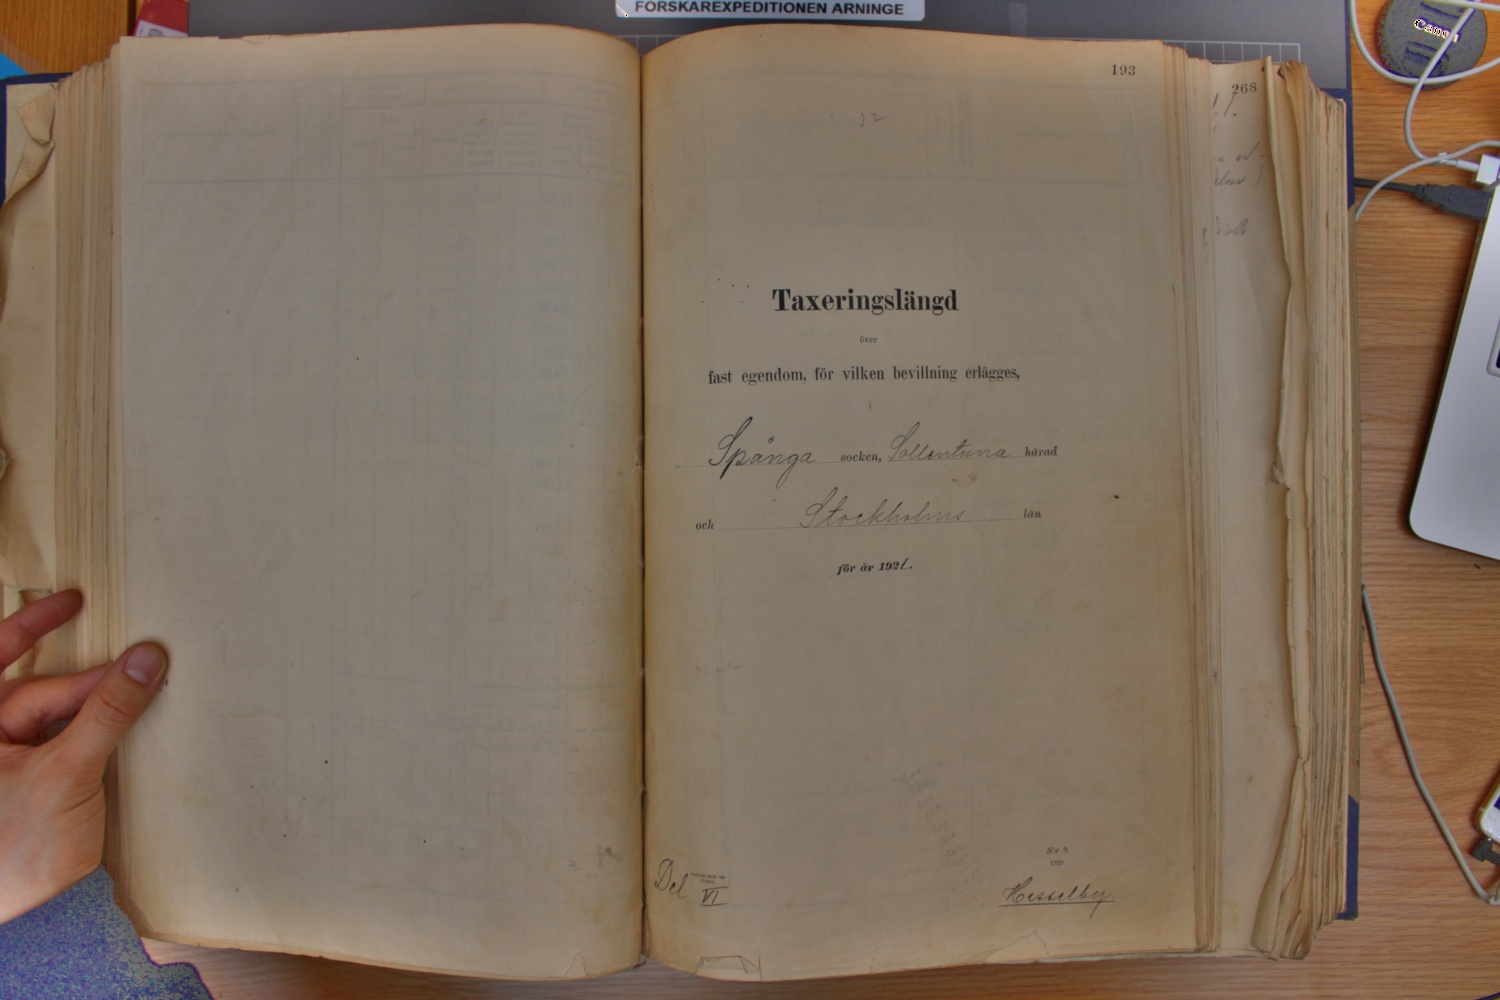 FORSKAREXPEDITIONEN ARNINGE
Canon
193
268
Taxeringslängd
över
fast egendom, för vilken bevillning erlägges,
i
Spånga socken, Sollentuna härad
och Stockholms län
för år 1921.
N:r 9.
1920
Del VI
Hesselby.